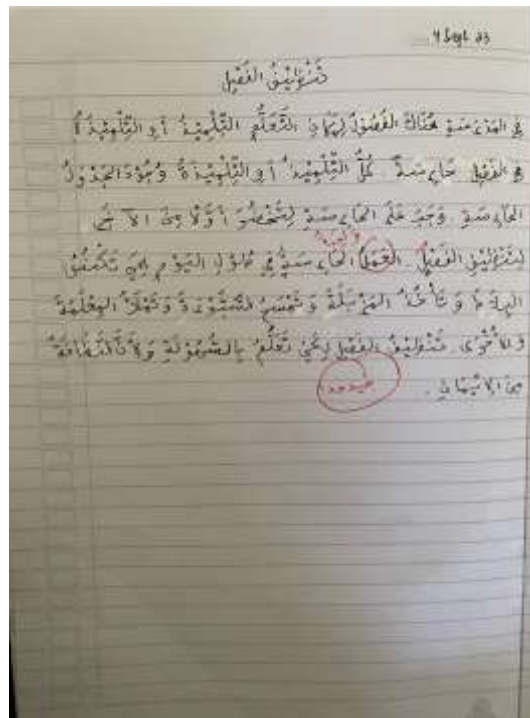 4 Sept 23
تَنْظِيْفُ الفَصْلِ
فِي المَدْرَسَةِ هُنَاكَ الفُصُوْلُ لِمَكَانِ التَّعَلُّمِ التِّلْمِيْذُ أَوِ التِّلْمِيْذَةُ
فِي الفَصْلِ حَارِسَةٌ. كُلُّ التِّلْمِيْذِ أَوِ التِّلْمِيْذَةُ وُجُوْدُ الجَدْوَلُ
الحَارِسَةِ. وَجَبَ عَلَى الحَارِسَةِ لِتَحْضُرَ أَوَّلًا مِنَ الآخَرِ
لِتَنْظِيْفِ الفَصْلِ. العَمَلُ الحَارِسَةِ فِي طُوْلِ اليَوْمِ هِيَ تَكْنُسُ
البِلَاطَ وَ تَأْخُذُ المَزْبَلَةَ وَ تَمْسَحُ السَّبُّوْرَةَ وَ تَمْلَأُ المِعْلَمَةَ
وَ الأُخْرَى. تَنْظِيْفُ الفَصْلِ لِكَيْ تَعَلُّمُ بِالسُّهُوْلَةِ وَ لِأَنَّ النَّظَافَةَ
مِنَ الإِيْمَانِ.